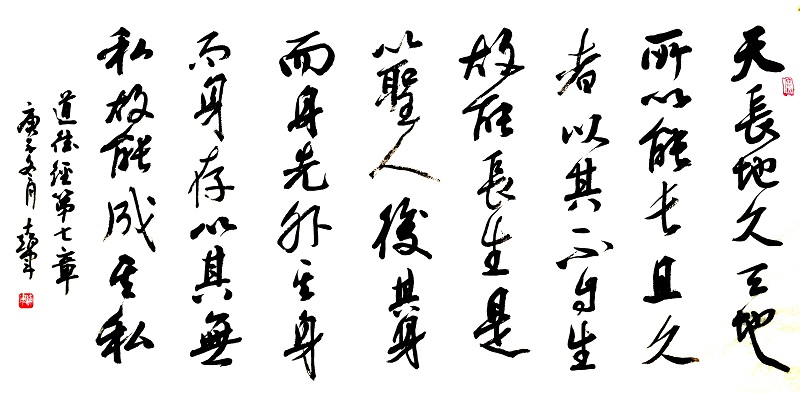 天長地久天地
所以能長且久
者以其不自生
故能長生是
以聖人後其身
而身先外其身
而身存以其無
私故能成其私
道德經第七章
庚子冬月